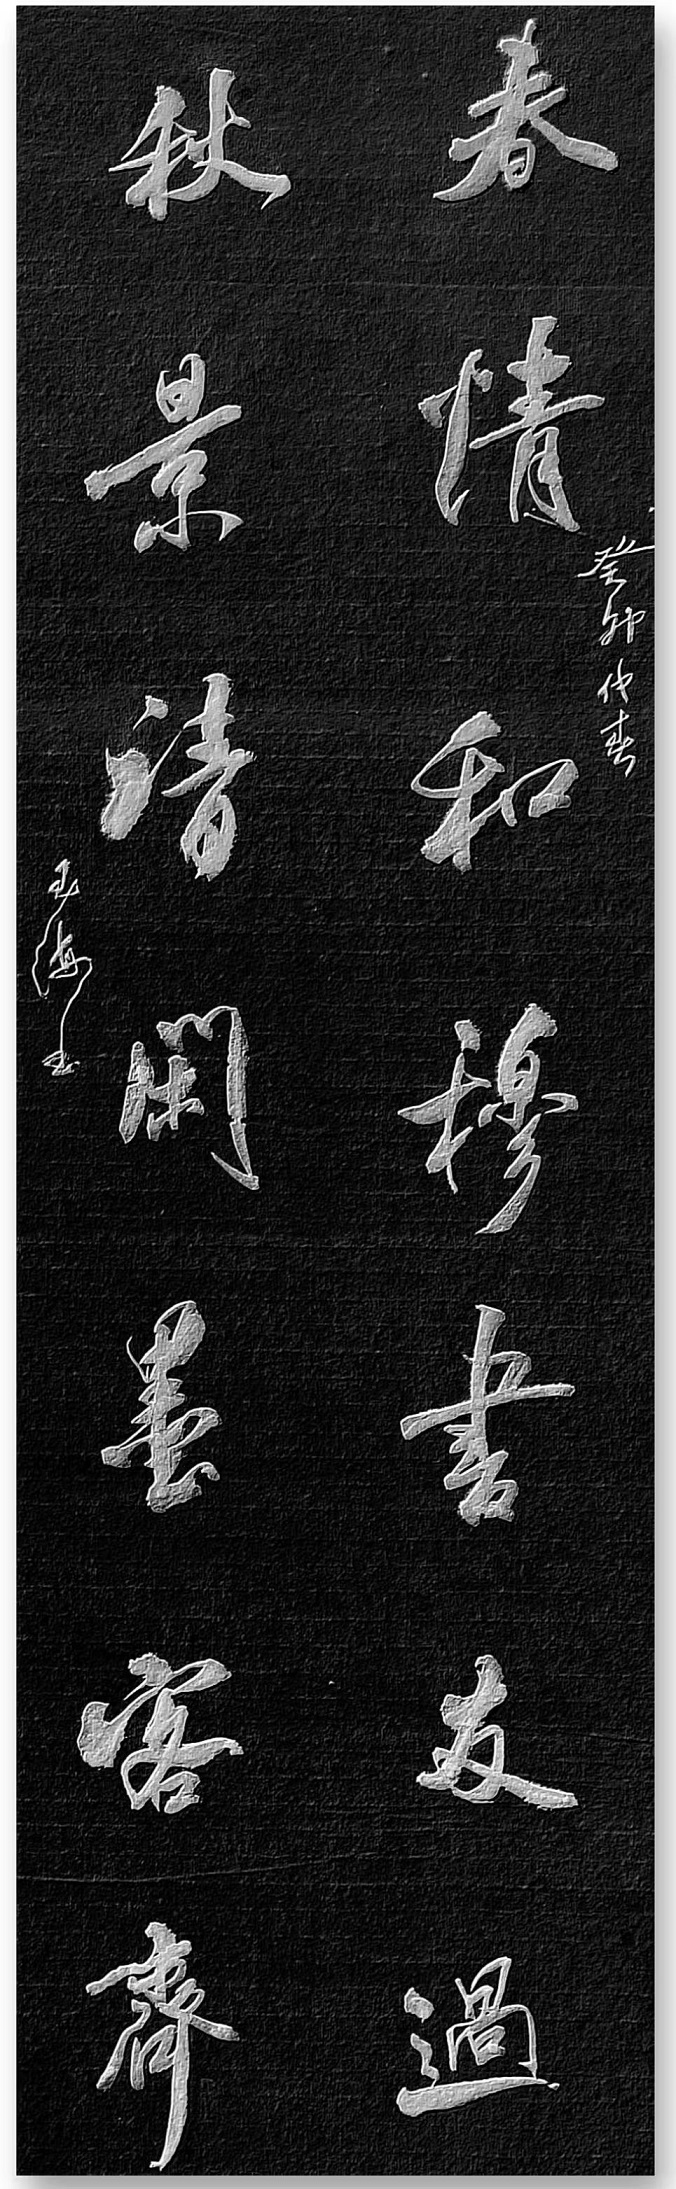 春情和穆書友過
癸卯仲春
秋景清閑墨客齊
玉海